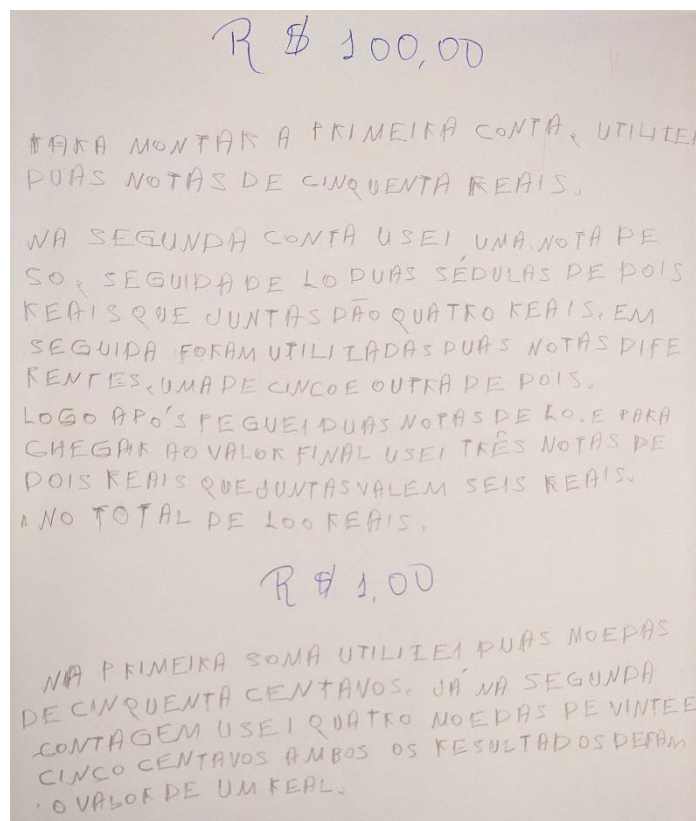 R$ 100,00
PARA MONTAR A PRIMEIRA CONTA, UTILIZEI
DUAS NOTAS DE CINQUENTA REAIS.
NA SEGUNDA CONTA USEI UMA NOTA DE
50, SEGUIDA DE 10 DUAS SÉDULAS DE DOIS
REAIS QUE JUNTAS DÃO QUATRO REAIS. EM
SEGUIDA FORAM UTILIZADAS DUAS NOTAS DIFE
RENTES, UMA DE CINCO E OUTRA DE DOIS.
LOGO APÓS PEGUEI DUAS NOTAS DE 10. E PARA
CHEGAR AO VALOR FINAL USEI TRÊS NOTAS DE
DOIS REAIS QUE JUNTAS VALEM SEIS REAIS.
NO TOTAL DE 100 REAIS.
R$ 1,00
NA PRIMEIRA SOMA UTILIZEI DUAS MOEDAS
DE CINQUENTA CENTAVOS. JÁ NA SEGUNDA
CONTAGEM USEI QUATRO MOEDAS DE VINTE E
CINCO CENTAVOS AMBOS OS RESULTADOS DERAM
O VALOR DE UM REAL.